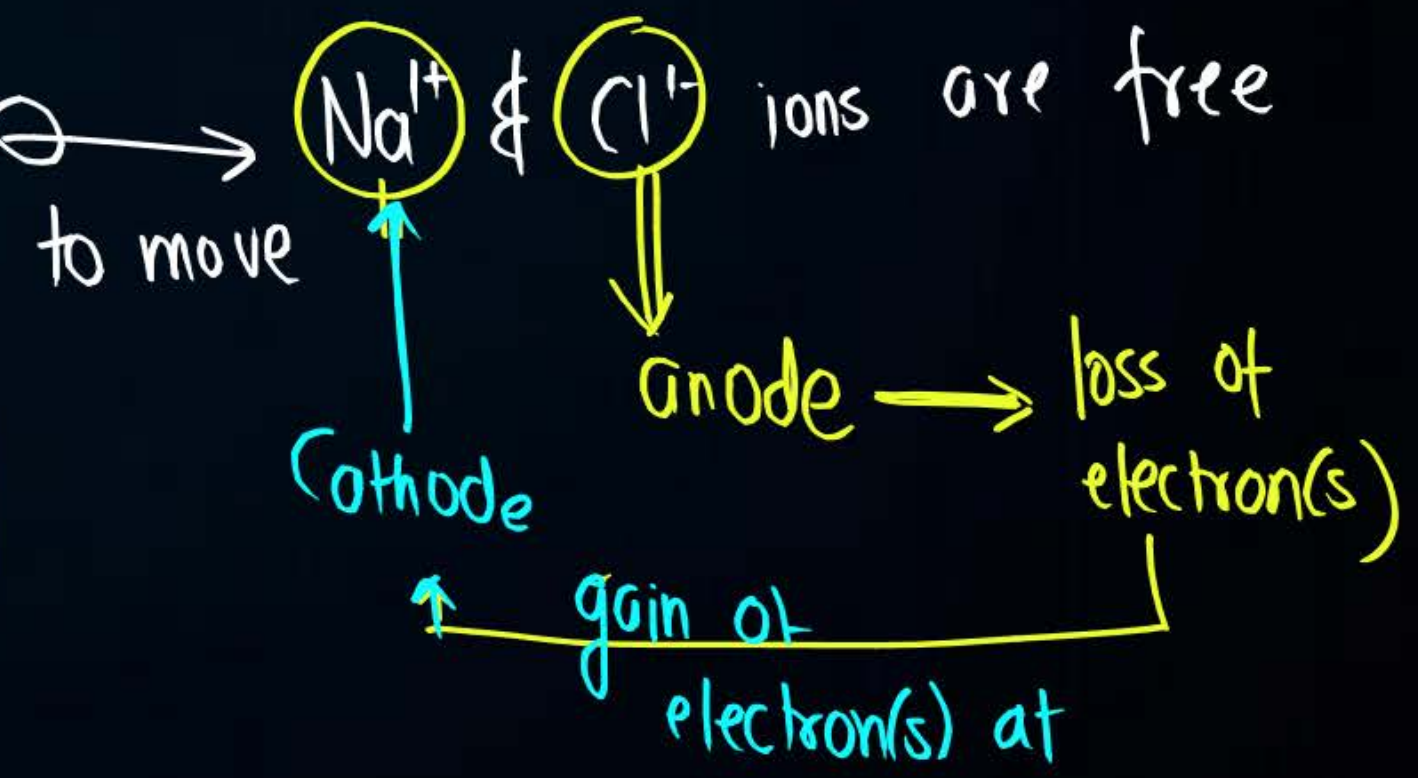 Na¹⁺ & Cl¹⁻ ions are free
to move
anode → loss of
electron(s)
Cathode
gain of
electron(s) at